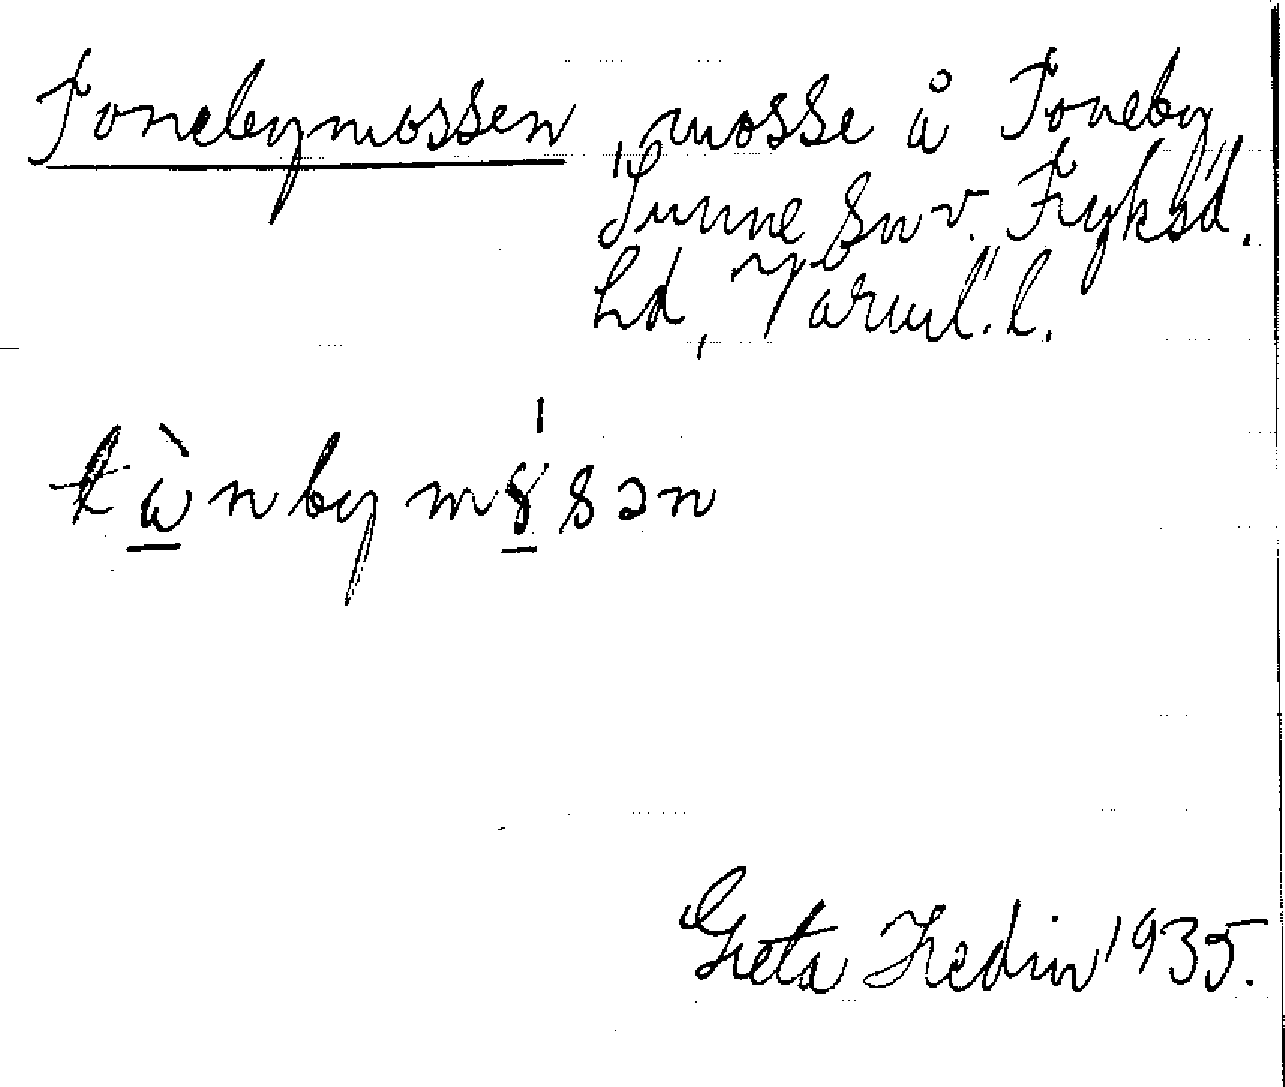 Tonebymossen, mosse å Toneby,
Sunne sn v. Fryksd.
hd, Värml. l.
tὼnbymósən
Greta Hedin 1935.